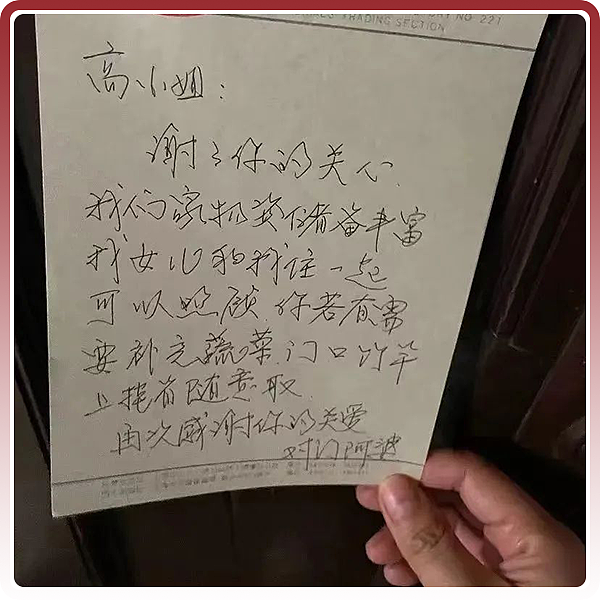 NO 221
TRADING SECTION
高小姐：
谢谢你的关心.
我们家物资储备丰富
我女儿和我住一起
可以照顾.你若有需
要补充蔬菜.门口竹竿
上挂着随意取.
再次感谢你的关爱
对门阿婆